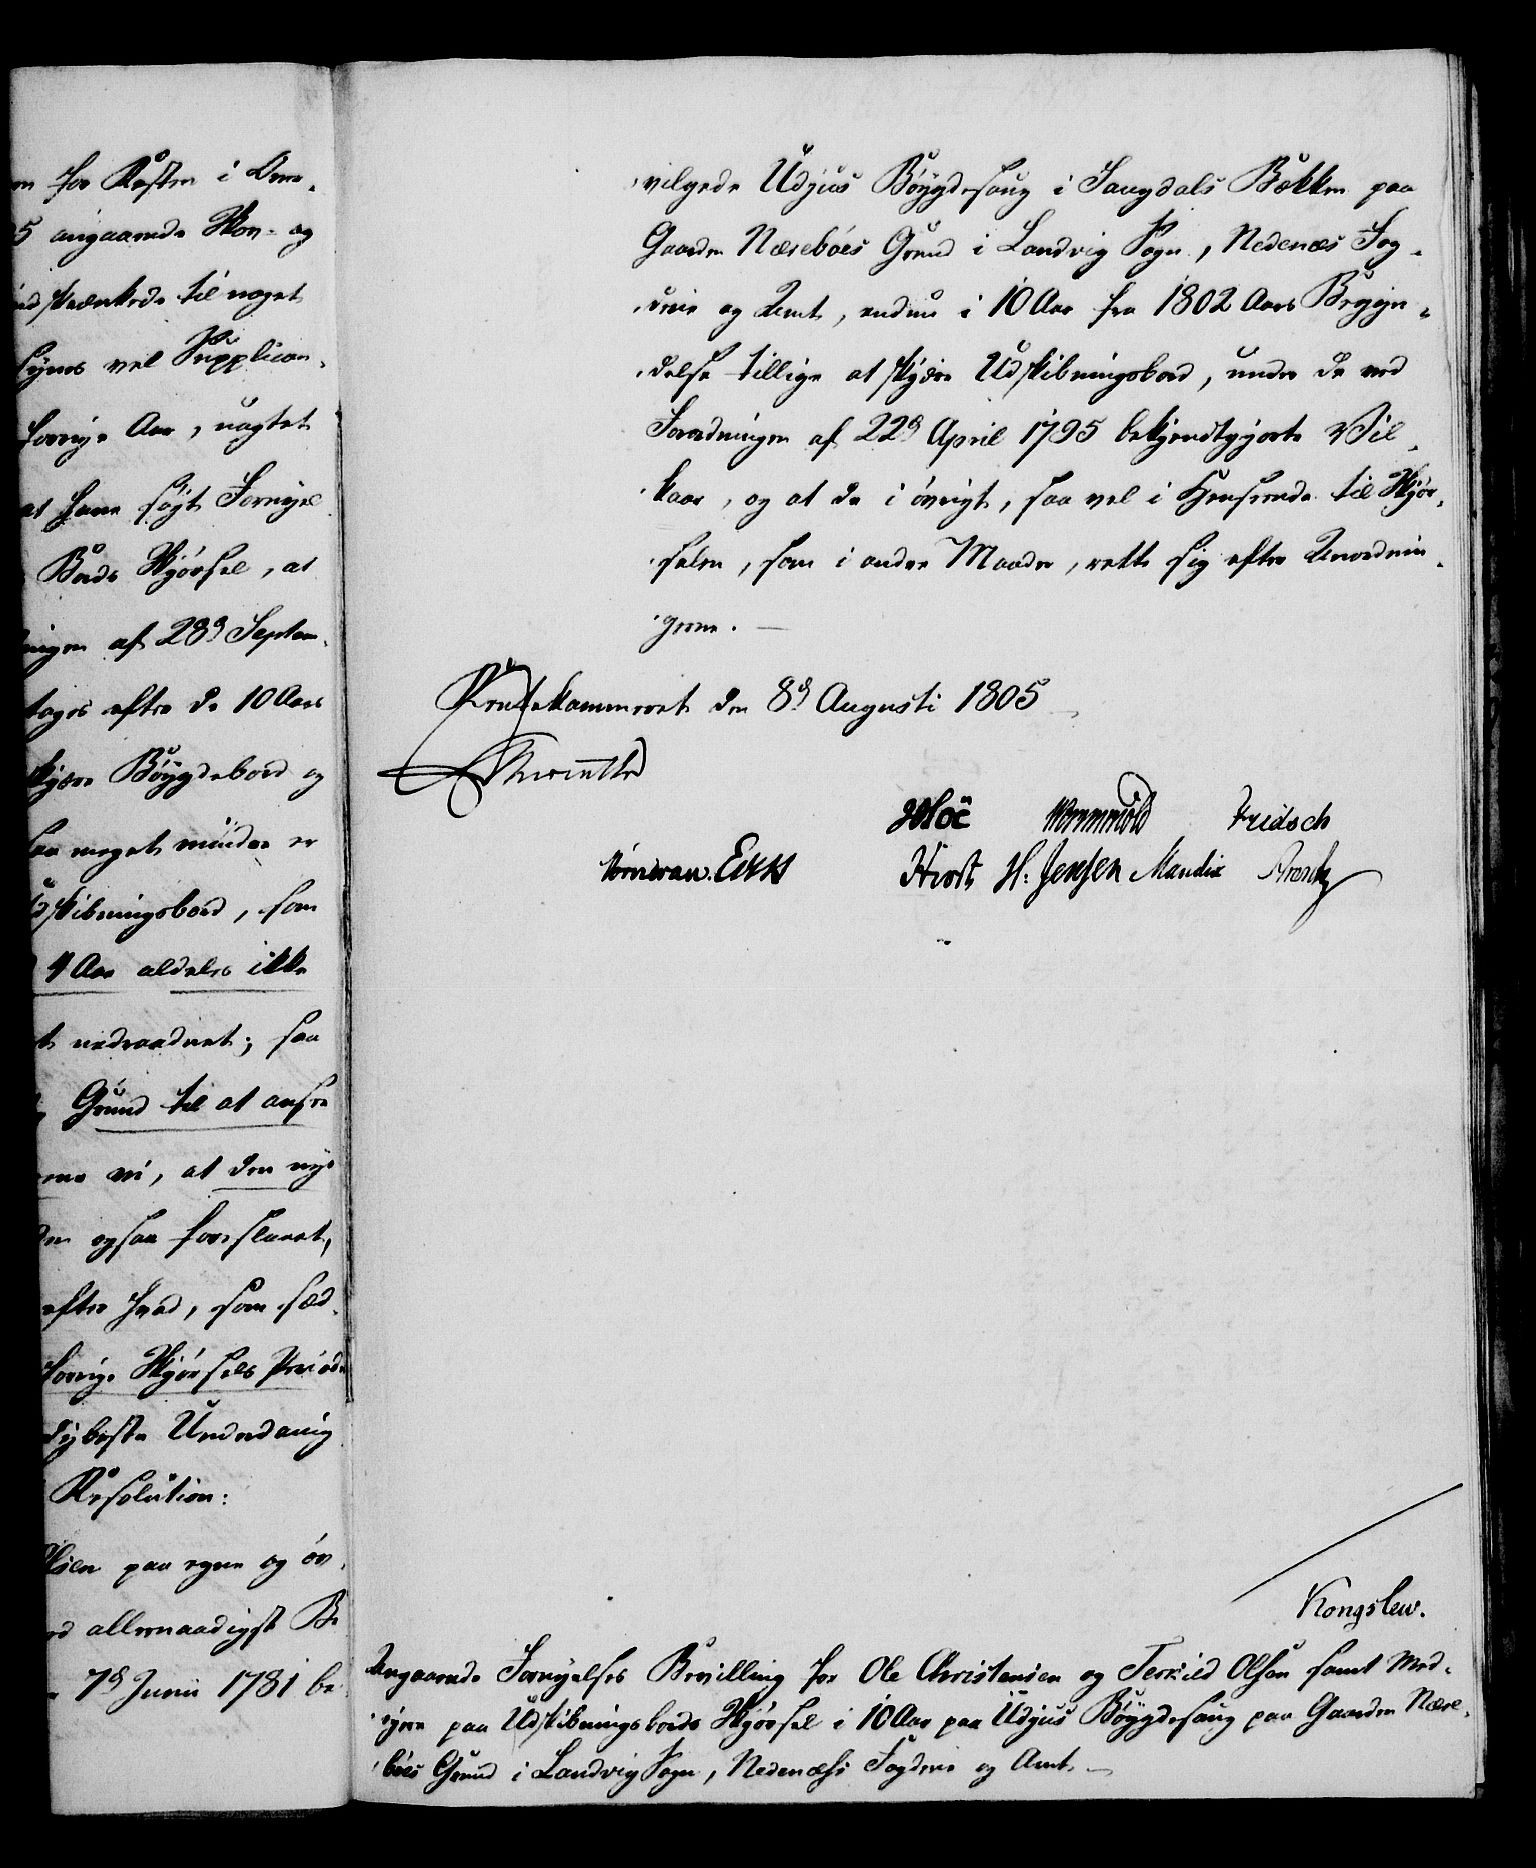 en for Resten i Over-
5 angaaende Skov- og
indskrænkede til noget
synes vel Supplican-
forrige Aar, uagtet
at have søgt Fornyel
Bords Skjørsel, at
ningen af 28d Septem-
tages efter de 10 Aars
skjære Bøygdebord og
saa meget mindre er
Udskibningsbord, som
4 Aar aldeles ikke
t nedraadnet; saa
Grund til at ansee
ene vi, at den nye
den ogsaa foreslaaet,
efter hvad, som sæd-
forrige Skjørsels Periode
dybeste Underdanig
Resolution:
Olsen paa egne og øv-
ed allernaadigst Be
7d Junii 1781 be
vilgede Udjus Bøygdesaug i Saugdals Bækken paa
Gaarden Næsebøes Grund i Landvig Sogn, Nedenæs Fog-
derie og Amt, endnu i 10 Aar fra 1802 Aars Begyn-
delse tillige at skjære Udskibningsbord, under de ved
Forordningen af 22d April 1795 bekjendtgjorte Vil-
kaar, og at de i øvrigt, saa vel i Henseende til Skjør-
selen, som i andre Maader, rette sig efter Anordnin-
gerne. —
Rentekammeret den 8d Augusti 1805
Reventlow
Hoë Wormskiold Fridsch
Hirsth H. Jensen Mandix
Kongslew.
Angaaende Fornyelses Bevilling for Ole Christensen og Terkild Olsen samt Med-
eiere paa Udskibningsbords Skjørsel i 10 Aar paa Udjus Bøygdesaug paa Gaarden Næse-
bøes Grund i Landvig Sogn, Nedenæss Fogderie og Amt. —